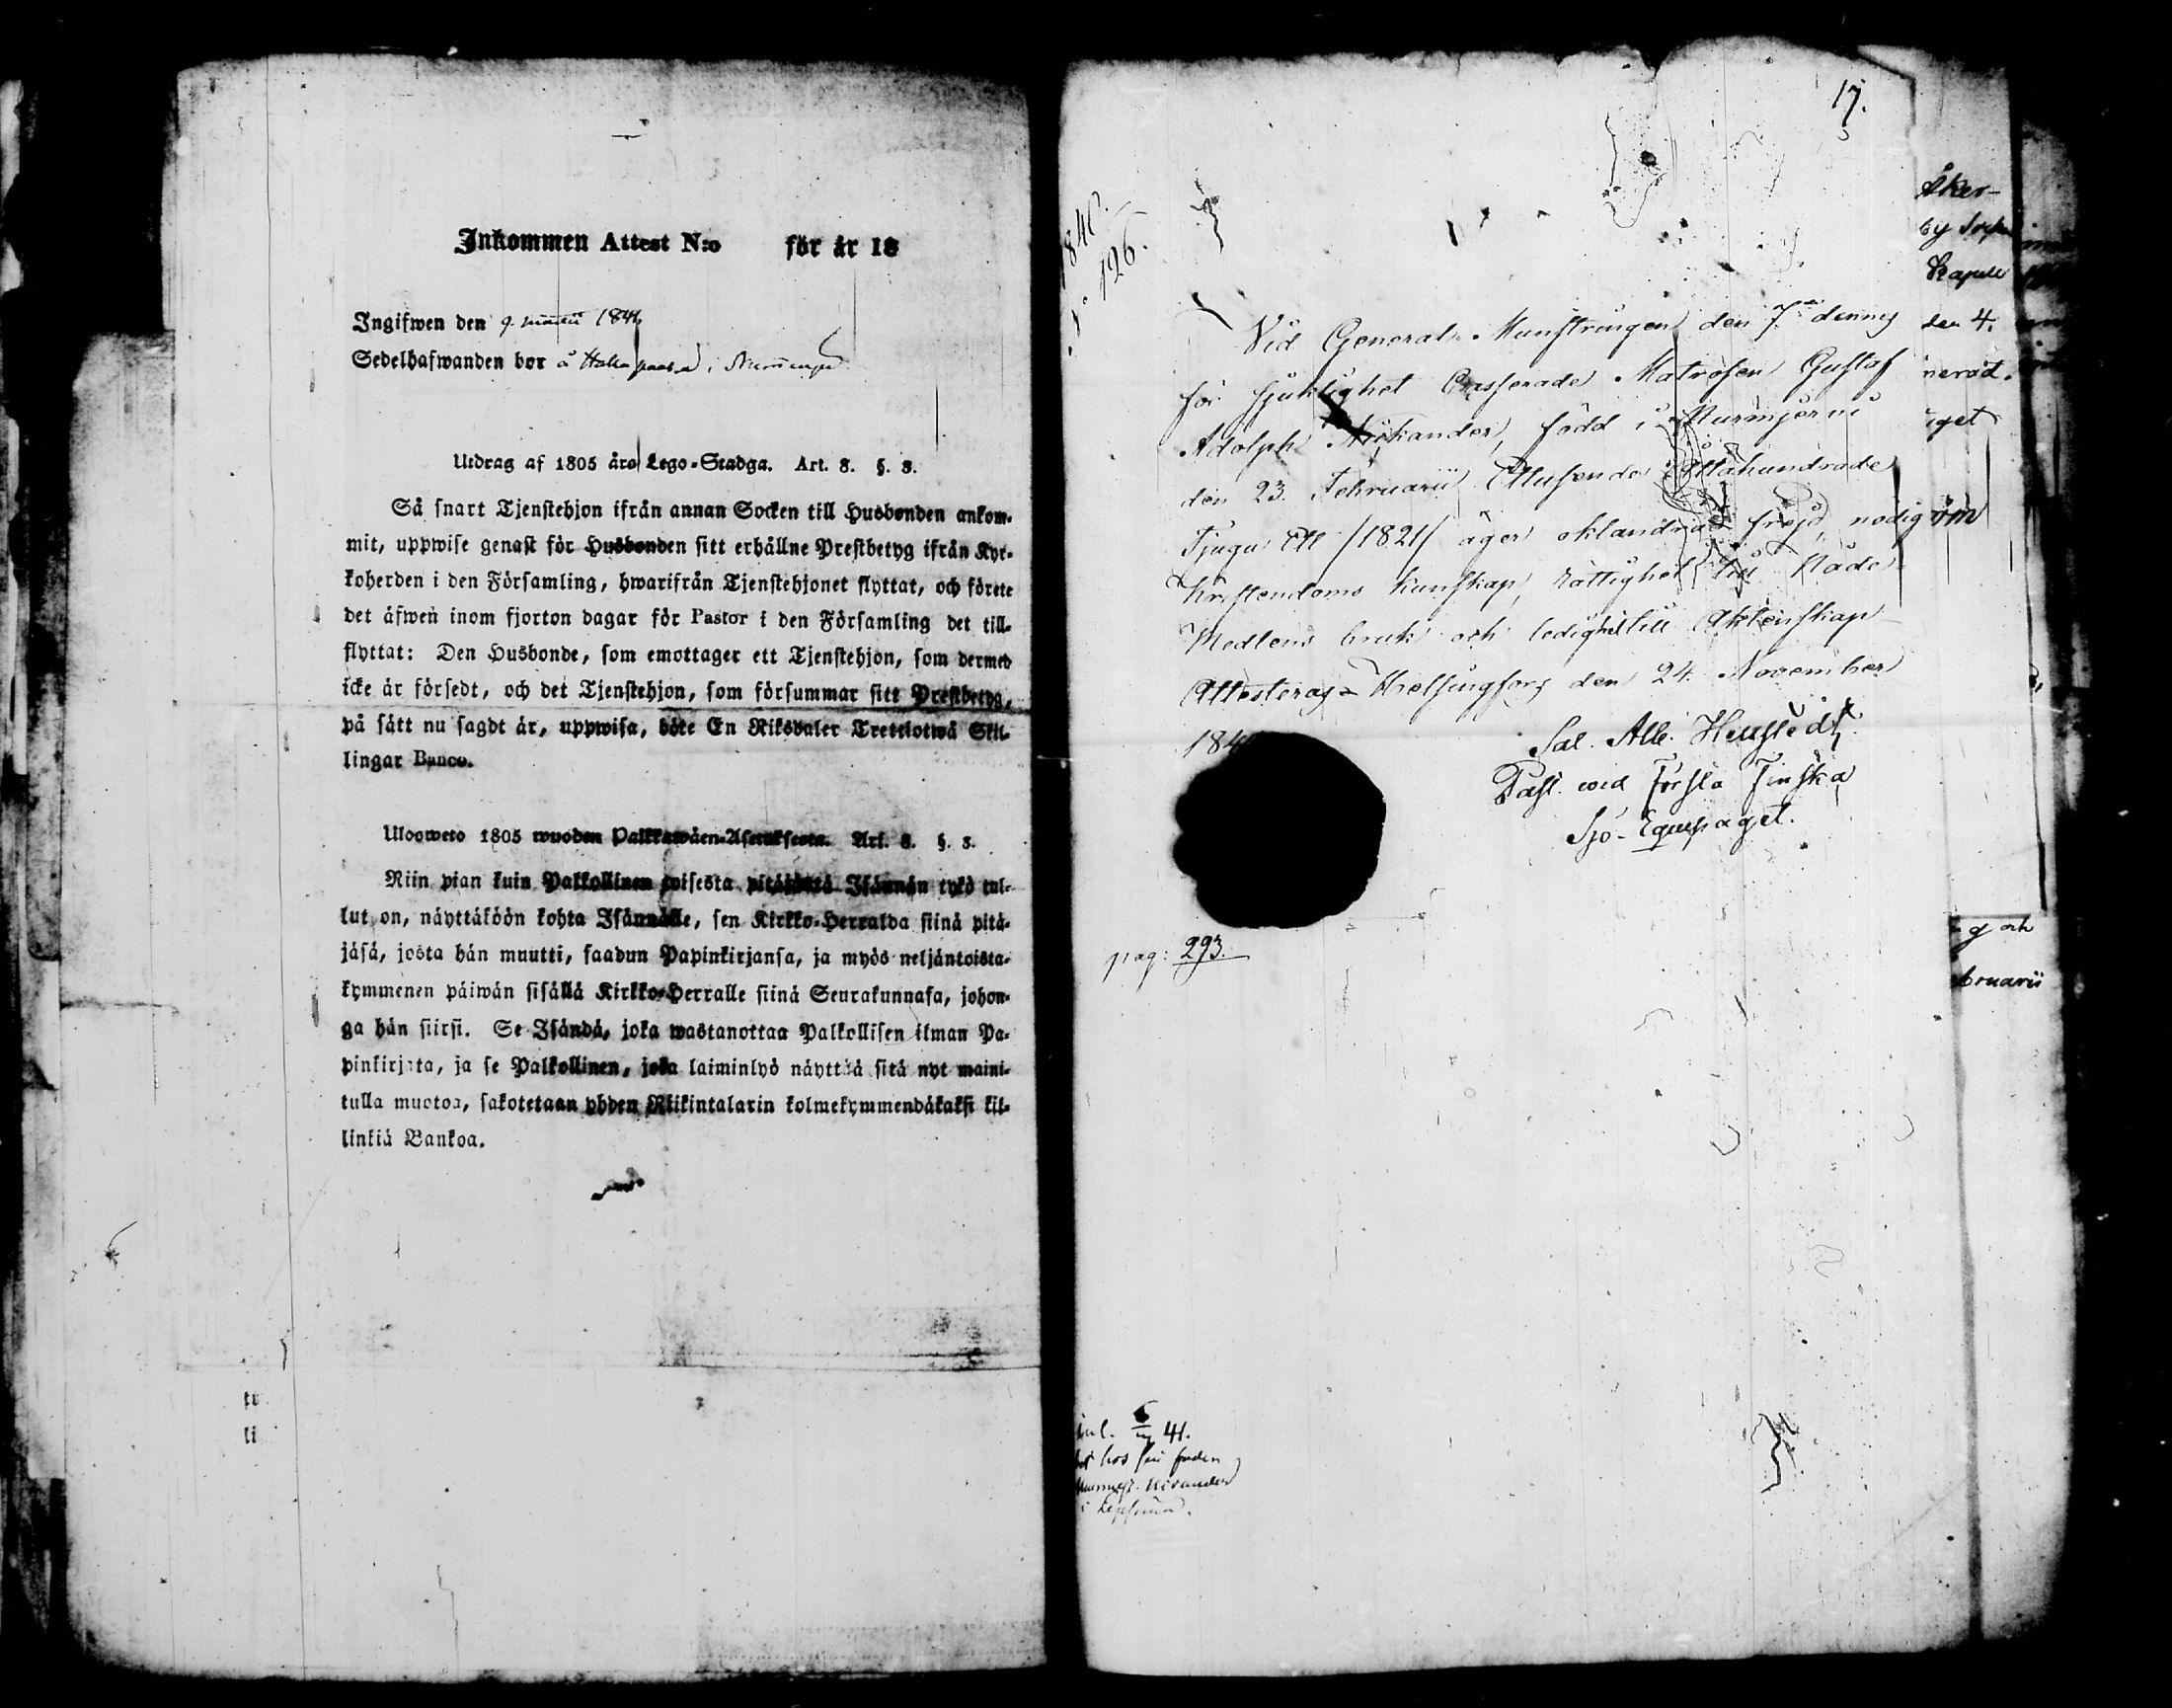 Inkommen Attest N:o för år 18
Ingifwen den 9 martii 1841
Sedelhafwanden bor å i
Utdrag af 1805 års Lego-Stadga. Art. 8. §. 3.
Så snart Tjenstehjon ifrån annan Socken till Husbonden ankom-
mit, uppwise genast för Husbonden sitt erhållne Prestbetyg ifrån Kyr-
koherden i den Församling, hwarifrån Tjenstehjonet flyttat, och förete
det äfwen inom fjorton dagar för Pastor i den Församling det till-
flyttat: Den Husbonde, som emottager ett Tjenstehjon, som dermed
icke är försedt, och det Tjenstehjon, som försummar sitt Prestbetyg,
på sätt nu sagdt är, uppwisa, böte En Riksdaler Trettiotwå Skil-
lingar Banco.
Uloosweto 1805 wuoden Palkkawäen-Asetuksesta. Art. 8. §. 3.
Niin pian kuin Palkollinen toisesta pitäjästä Isännän tykö tul-
lut on, näyttäköön kohta Isännälle, sen Kirkko-Herralda siinä pitä-
jäsä, josta hän muutti, saadun Papinkirjansa, ja myös neljäntoista-
kymmenen päiwän sisällä Kirkko-Herralle siinä Seurakunnasa, johon-
ga hän siirsi. Se Isändä, joka wastanottaa Palkollisen ilman Pa-
pinkirjata, ja se Palkollinen, joka laiminlyö näyttää sitä nyt maini-
tulla muotoa, sakotetaan yhden Riikintalarin kolmekymmendäkaksi kil-
linkiä Bankoa.
tu
li
17.
1840.
N:o 126.
Vid General-Munstringen den 7de dennes
för sjuklighet Casserade Matrosen Gustaf
Adolph född i Nurmijervi
den 23. Februarii Ettusende Åttahundrade
Tjugu Ett /1821/ äger oklandrad frejd, nödig
Kristendoms kunskap, rättighet till Nåde-
Medlens bruk och ledighet till Äktenskap
Attesteras Helsingfors den 24. November
184
Sal. Alb.
Past. wid Första Finska
Sjö-Equipaget.
pag: 293.
inl. 41.
bor hos sin fader
i
Åker-
by
Kapell
den 4.
neråd.
iget
om
g och
bruarii